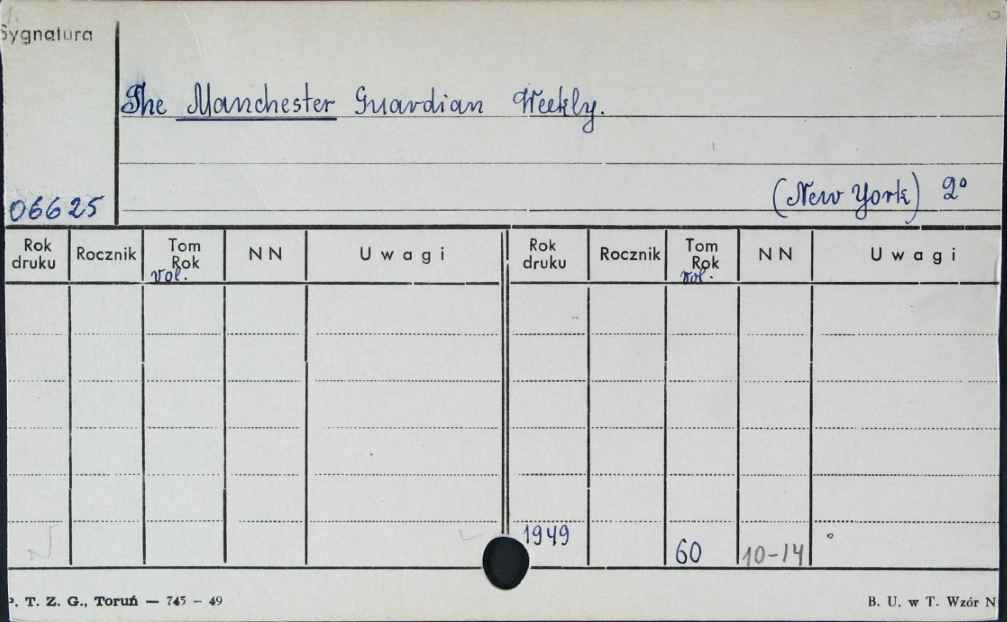 Sygnatura
The Manchester Guardian Weekly.
(New York) 2°
06625
Rok druku Rocznik Tom Rok vol. NN Uwagi Rok druku Rocznik Tom Rok vol. NN Uwagi
1949 60 10-14
P. T. Z. G., Toruń — 745 – 49 B. U. w T. Wzór N